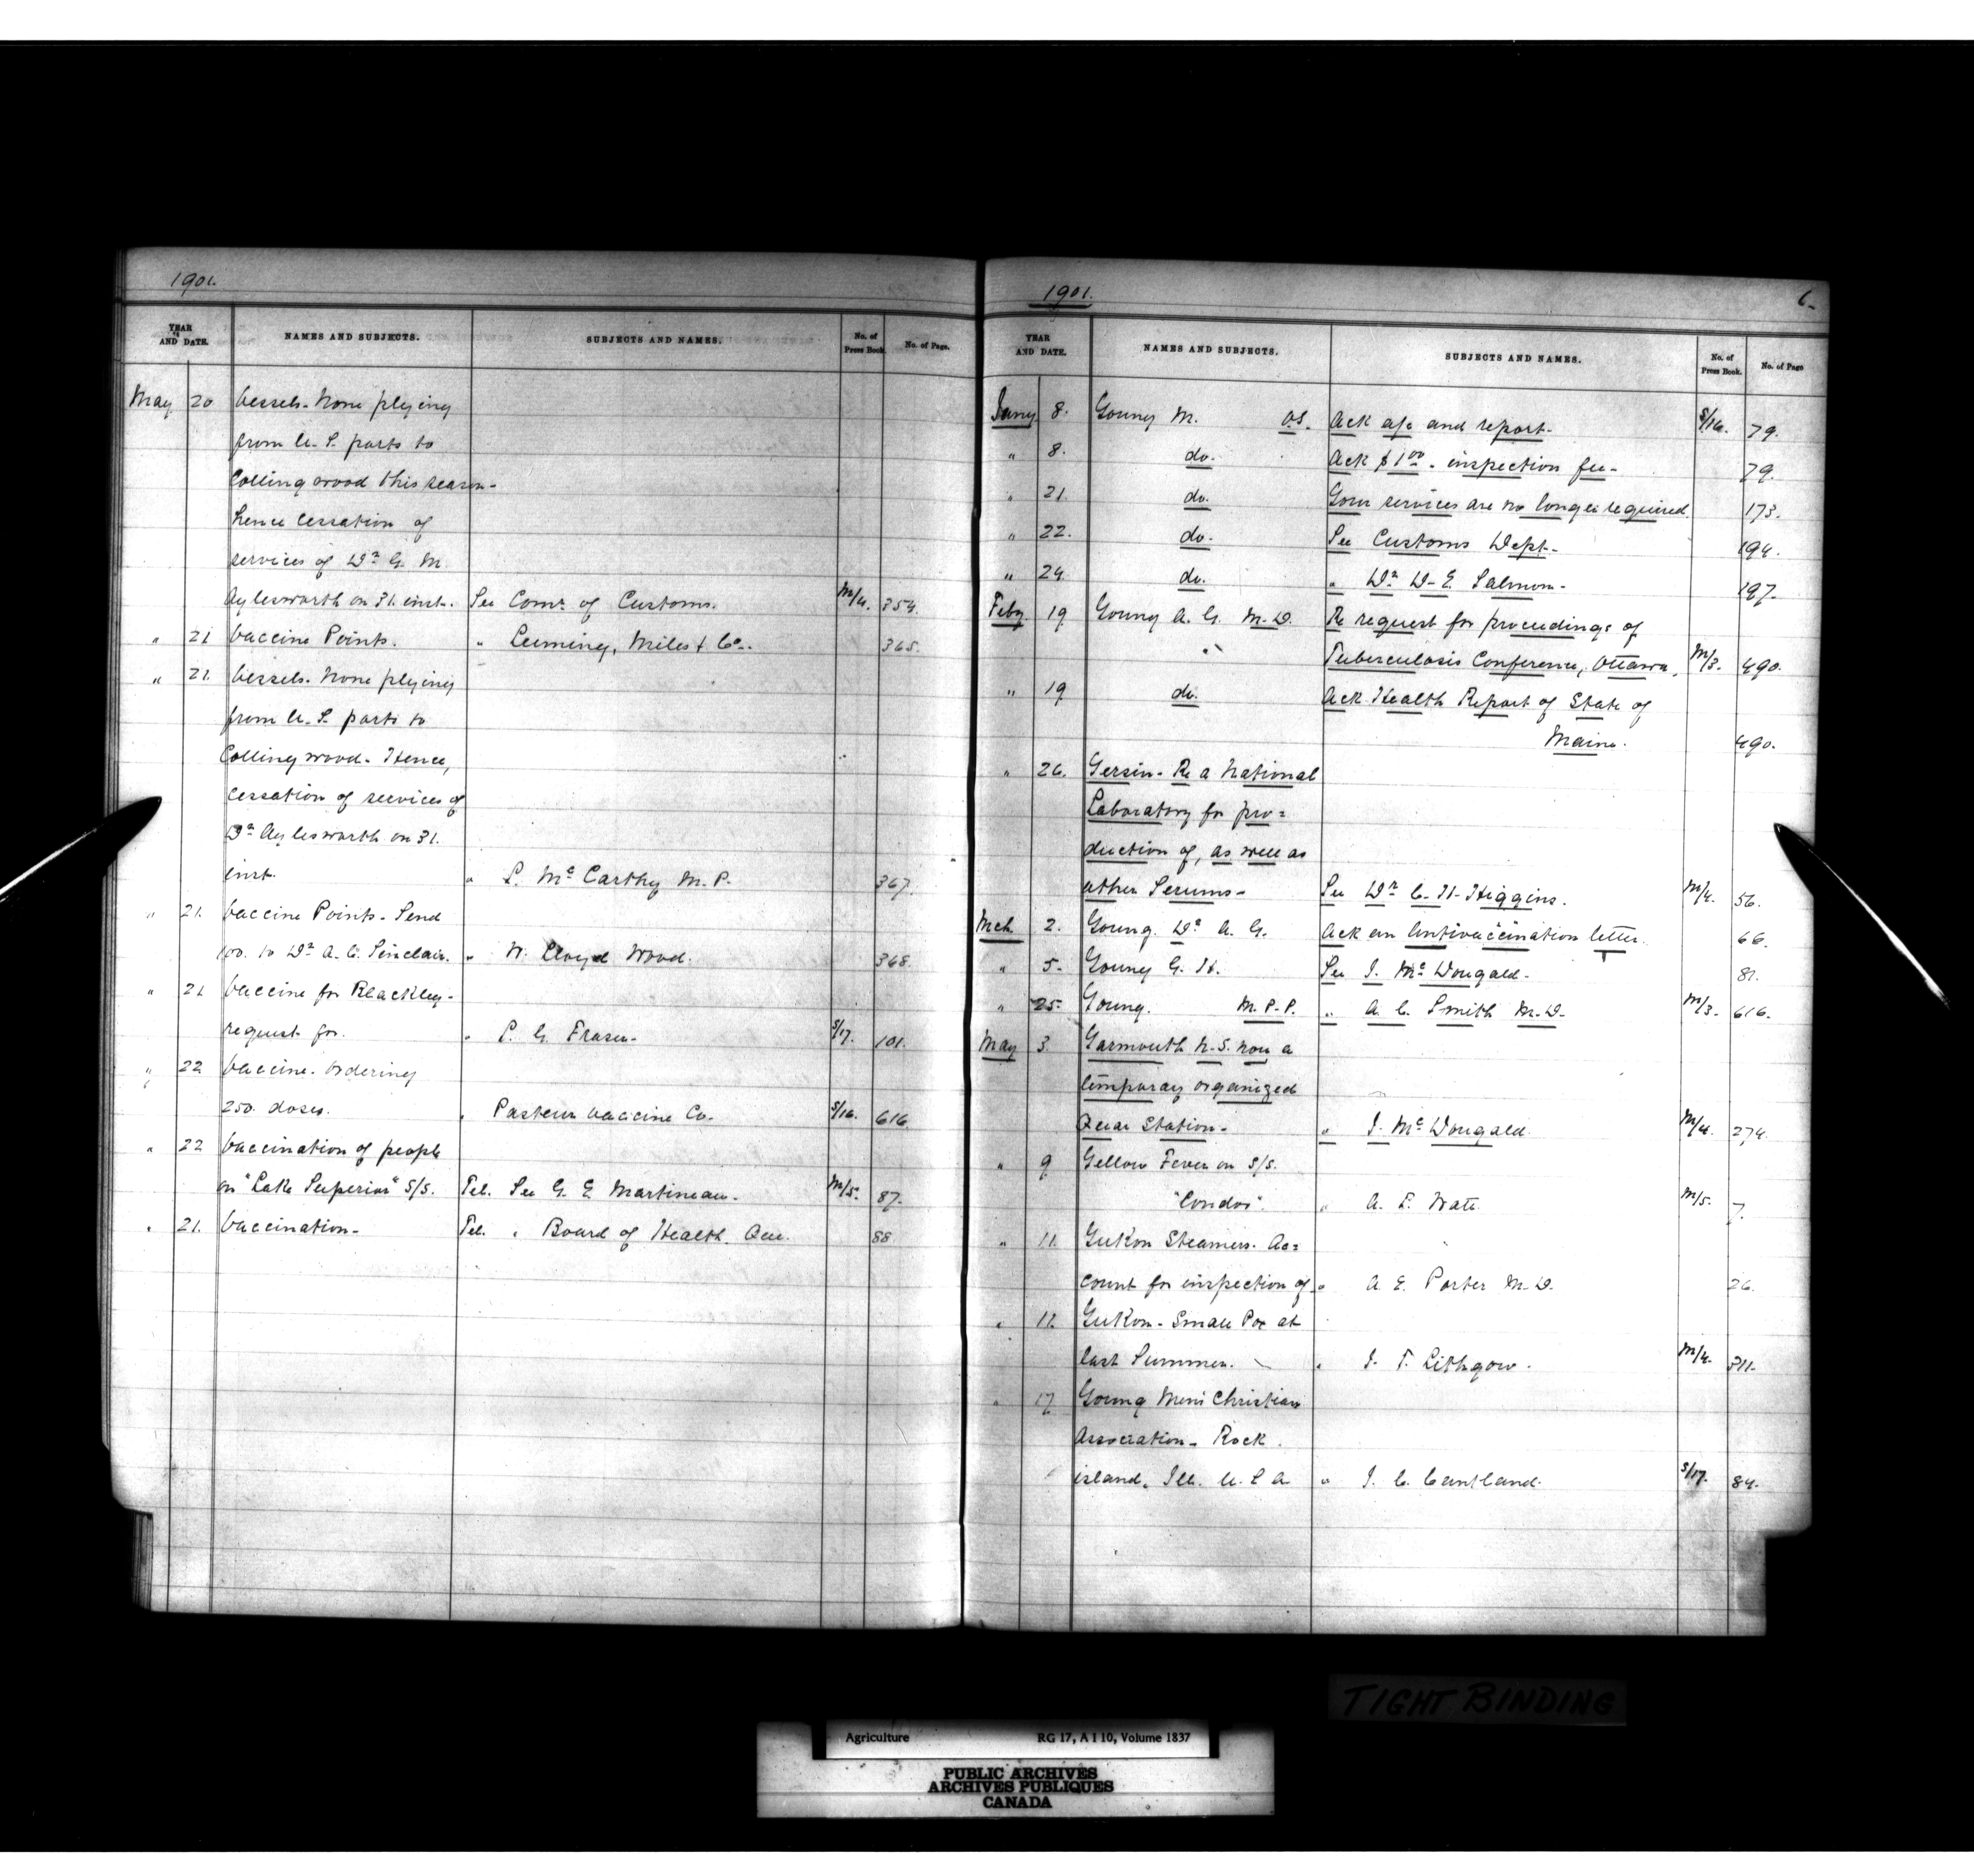 1901.
YEAR AND DATE. NAMES AND SUBJECTS. SUBJECTS AND NAMES. No. of Press Book. No. of Page.
May 20 Vessels. None plying
from U.S. ports to
Collingwood this season-
hence cessation of
services of Dr G. M.
Aylesworth on 31. inst. See Comr of Customs. M/4. 354.
" 21 Vaccine Points. " Leeming, Miles & Co. 365.
" 21. Vessels. None plying
from U.S. ports to
Collingwood. Hence,
cessation of services of
Dr Aylesworth on 31.
inst. " L. McCarthy M.P. 367.
" 21. Vaccine Points- Send
100. to Dr A. C. Sinclair. " N. Lloyd Wood. 368.
" 21 Vaccine for Blackley-
request for. " P. G. Fraser- S/17. 101.
" 22 Vaccine. Ordering
250. doses. " Pasteur Vaccine Co. S/16. 616.
" 22 Vaccination of people
on "Lake Superior" S/S. Tel. See G. E. Martineau. M/5. 87.
" 21. Vaccination- Tel. " Board of Health. Que. 88.
1901. 6-
YEAR AND DATE. NAMES AND SUBJECTS. SUBJECTS AND NAMES. No. of Press Book. No. of Page
Jany 8. Young M. O.S. Ack a/c and report. S/16. 79.
" 8. do. Ack $1 00. inspection fee- 79.
" 21. do. Your services are no longer required. 173.
" 22. do. See Customs Dept. 194.
" 24. do. " Dr D. E. Salmon. 197.
Feby 19 Young A. G. M.D. Re request for proceedings of
" Tuberculosis Conference, Ottawa. M/3. 490.
" 19 do. Ack Health Report of State of
Maine. 490.
" 26. Yersin- Re a National
Laboratory for pro=
duction of, as well as
other Serums- See Dr C. H. Higgins. M/4. 56.
Mch. 2. Young. Dr A. G. Ack an Antivaccination letter. 66.
" 5. Young G. H. See J. McDougald- 81.
" 25- Young. M.P.P. " A. C. Smith M.D. M/3. 616.
May 3. Yarmouth N.S. now a
temporary organized
Quar Station- " J. McDougald. M/4. 274.
" 9 Yellow Fever on S/S.
"Condor". " A. T. Watt. M/5. 7.
" 11. Yukon Steamers. Ac=
count for inspection of " A. E. Porter M.D. 26.
" 11. Yukon- Small Pox at
last Summer. " J. T. Lithgow. M/4. 311.
" 17 Young Men's Christian
Association- Rock
island, Ill. U.S.A " J. C. Cantland. S/17. 84.
TIGHT BINDING
Agriculture RG 17, A I 10, Volume 1837
PUBLIC ARCHIVES
ARCHIVES PUBLIQUES
CANADA